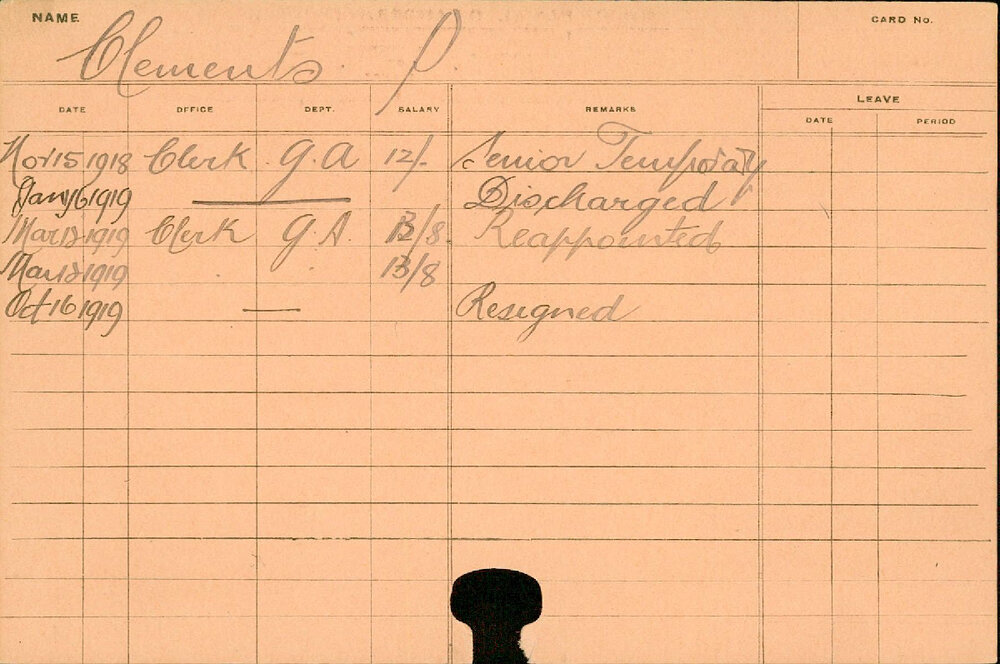 NAME
CARD No.
Clements. P.
DATE OFFICE DEPT. SALARY REMARKS LEAVE
DATE PERIOD
Nov 15 1918 Clerk G.A 12/- Senior Temporary
Jan 16 1919 Discharged
Mar 12 1919 Clerk G.A. 13/8 Reappointed
Mar 1919 13/8
Oct 16 1919 — Resigned